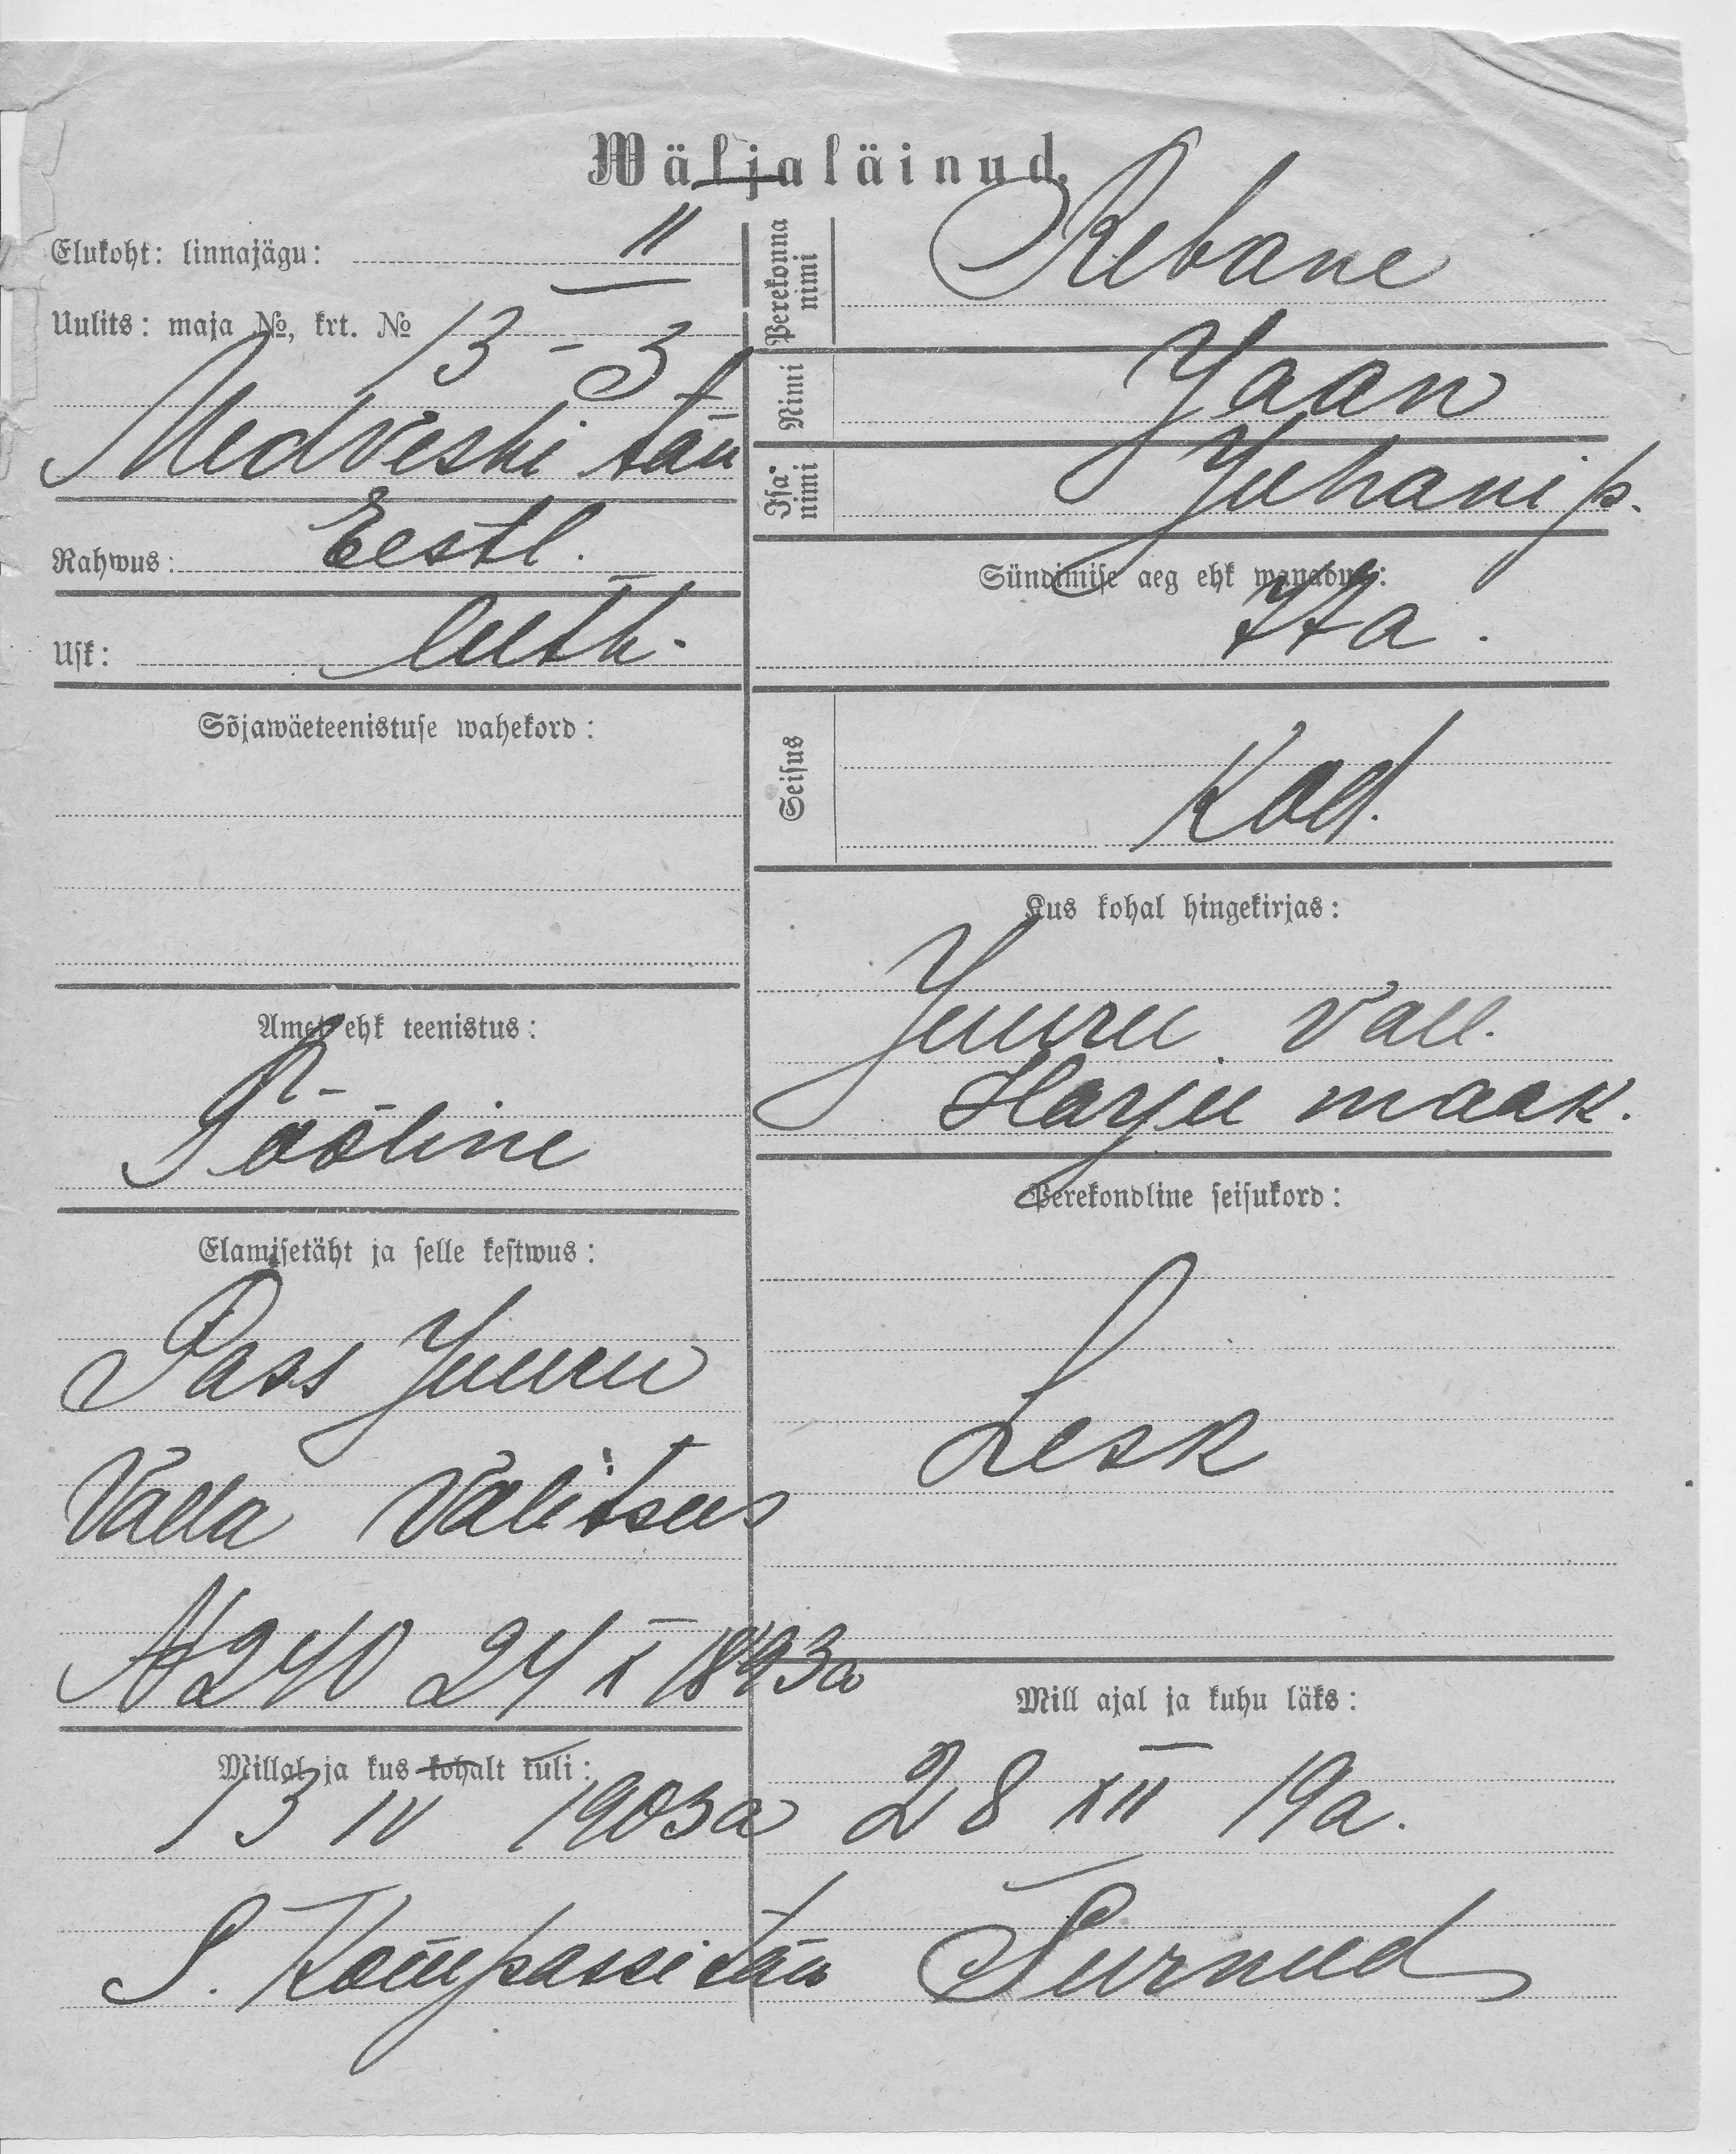 Wäljaläinud.
Elukoht: linnajägu: II
Uulits: maja №, krt. № 13 - 3
Medveski tän
Rahwus: Eestl.
Usk: luth.
Sõjawäeteenistuse wahekord:
Amet ehk teenistus:
Tööline
Elamisetäht ja selle kestwus:
Pass Juuru
Valla Valitsus
№ 240 24 X 1893a
Millal ja kus kohalt tuli:
13 IV 1903a
S. Kompassi tän
Perekonna nimi Rebane
Nimi Jaan
Isa nimi Juhani p.
Sündimise aeg ehk wanadus:
77a.
Seisus
Kod.
Kus kohal hingekirjas:
Juuru vall.
Harju maak.
Perekondline seisukord:
Lesk
Mill ajal ja kuhu läks:
28 XII 19a.
Surnud